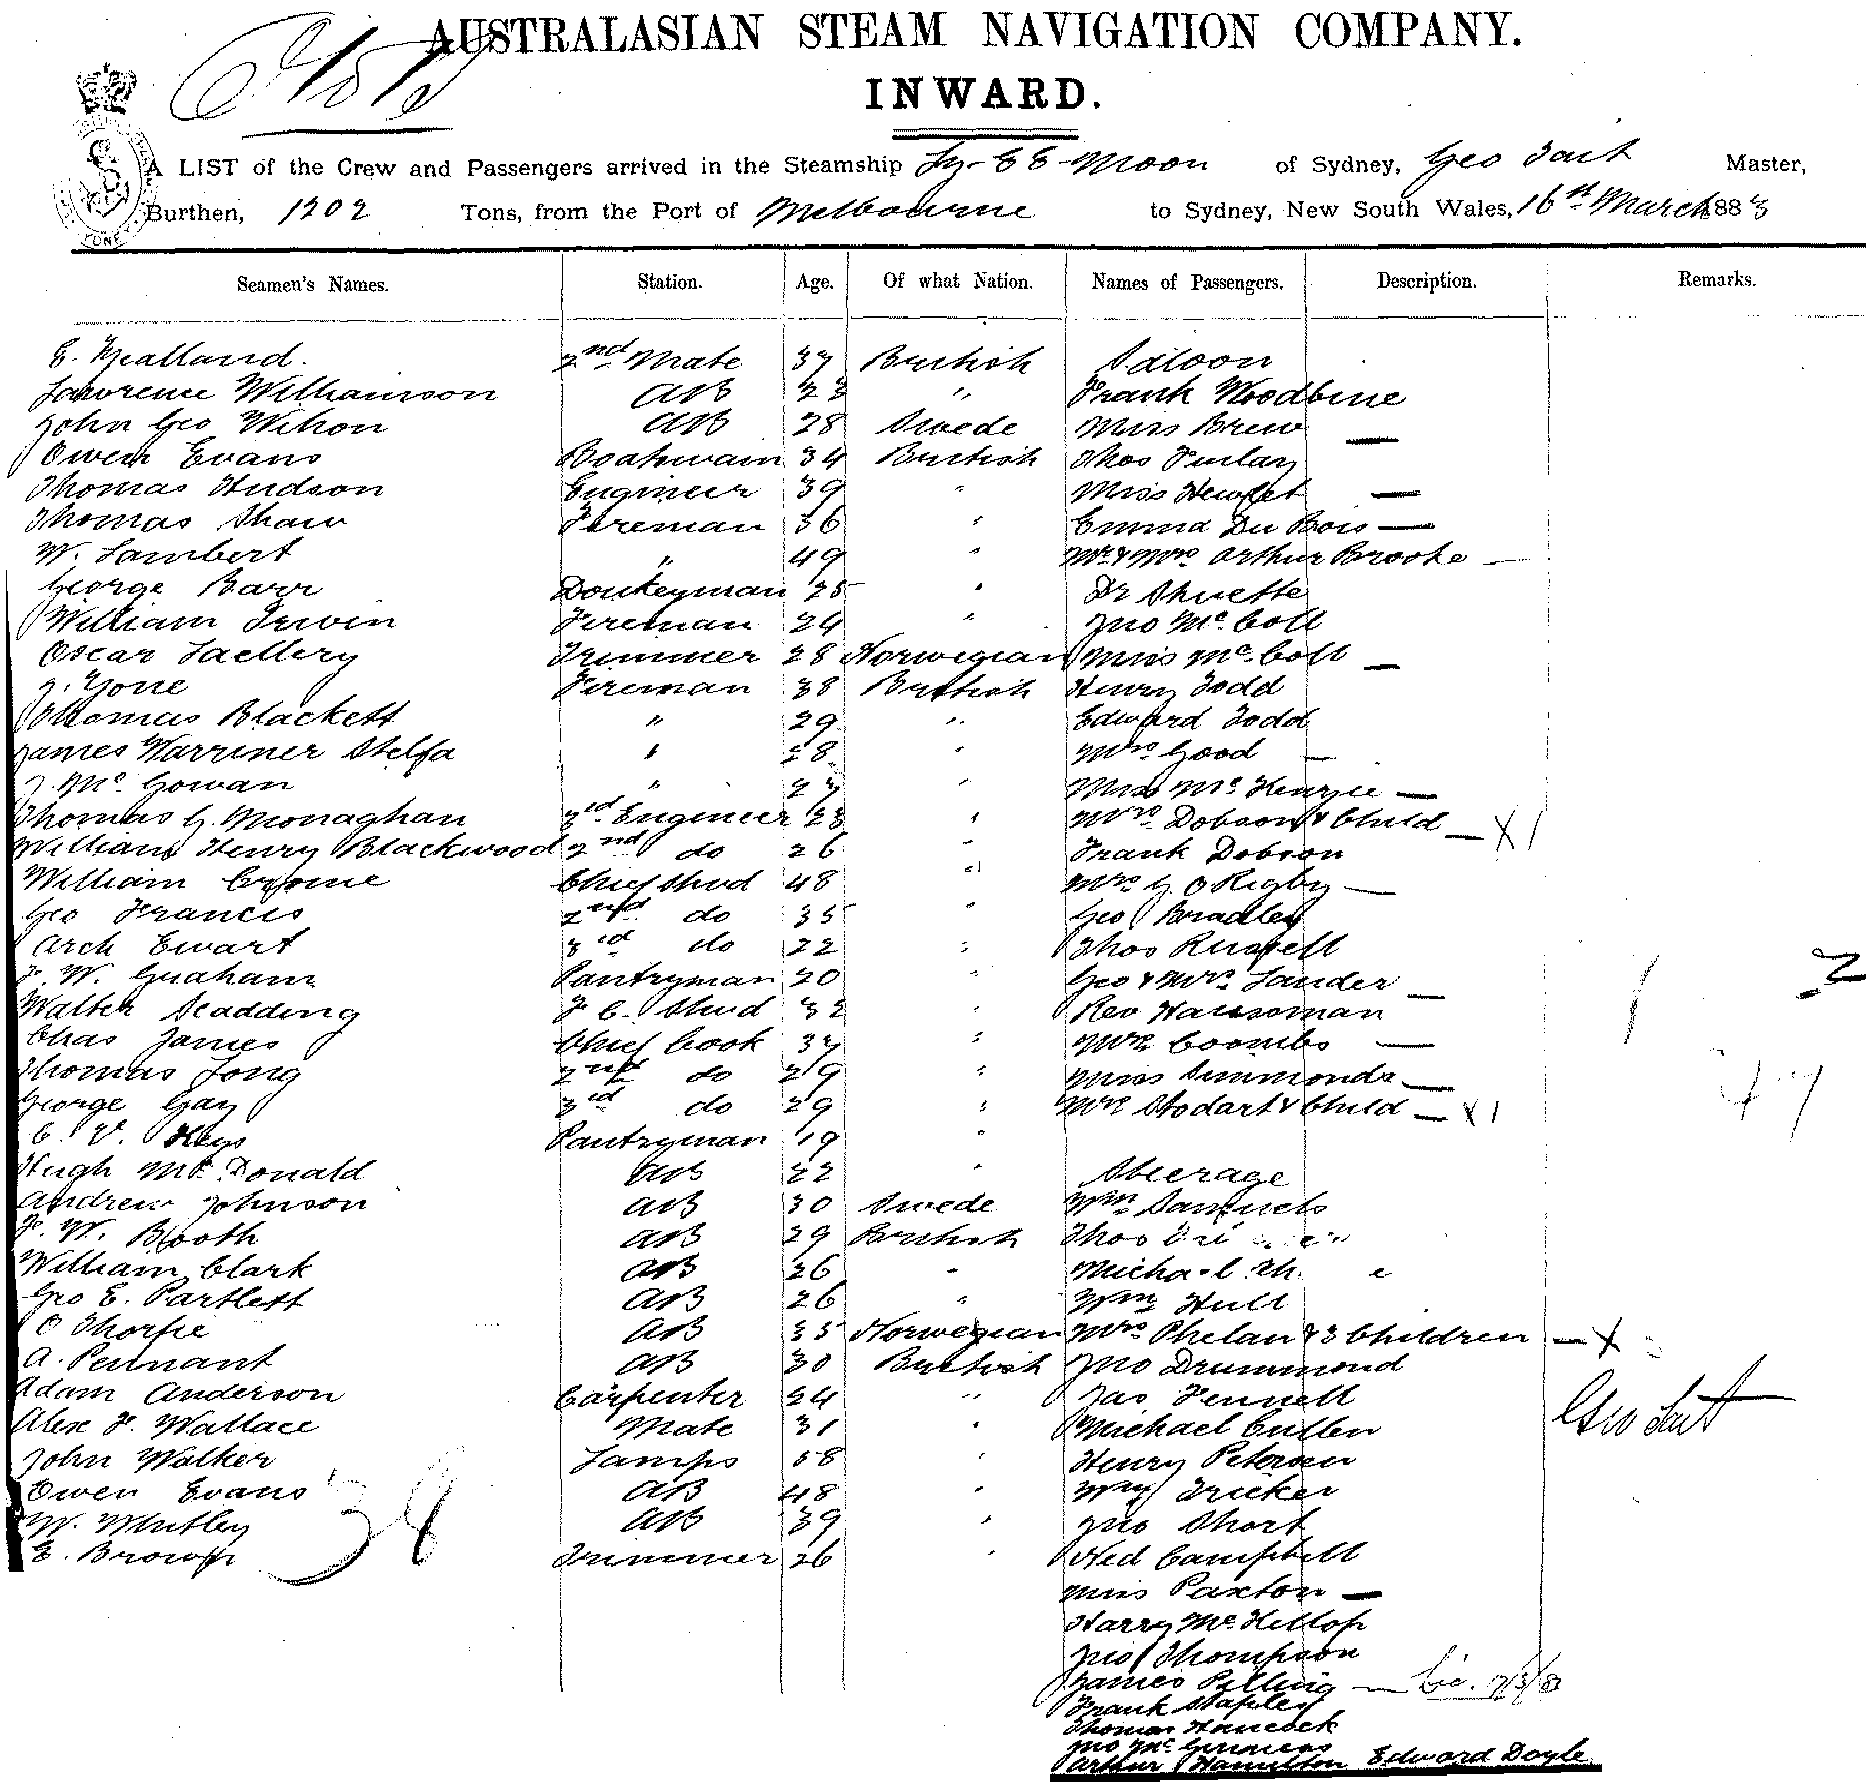 AUSTRALASIAN STEAM NAVIGATION COMPANY.
INWARD.
A LIST of the Crew and Passengers arrived in the Steamship Ly-EE-Moon of Sydney, Geo Tait Master,
Burthen, 1202 Tons, from the Port of Melbourne to Sydney, New South Wales, 16th March 1883
Seamen's Names. Station. Age. Of what Nation. Names of Passengers. Description. Remarks.
2nd Mate 37 British Saloon
Lawrence Williamson AB 23 " Frank Woodbine
John Geo Wilson AB 28 Swede Miss Brew —
Owen Evans Boatswain 34 British Thos Finlay
Thomas Hudson Engineer 39 " Miss Hewlet —
Thomas Shaw Fireman 36 " Emma Du Bois —
W. Lambert " 49 " Mr & Mrs Arthur Brooke —
George Barr Donkeyman 25 " Dr Shuette
William Irwin Fireman 24 " Jno McColl
Oscar Trimmer 28 Norwegian Miss McColl —
Fireman 38 British Henry Todd
Thomas Blackett " 29 " Edward Todd
James Warriner Stelfa " 28 " Mrs Good —
J. McGowan " 27 " Miss McKenzie —
Thomas G. Monaghan 3rd Engineer 23 " Mrs Dobson & Child — X 1
William Henry Blackwood 2nd do 26 " Frank Dobson
William Crome Chief Stwd 48 " Mrs G O Rigby —
Geo Francis 2nd do 35 " Geo Bradley
Arch Ewart 3rd do 22 " Thos Russell
F. W. Graham Pantryman 20 " Geo & Mrs Lander —
Walter Scadding F C. Stwd 32 " Rev Haussman
Chas James Chief Cook 37 " Mrs Coombs —
Thomas Long 2nd do 29 " Miss Simmonds —
George Gay 3rd do 29 " Mrs Stodart & Child — X 1
C. V. Heys Pantryman 19 "
Hugh McDonald AB 22 " Steerage
Andrew Johnson AB 30 Swede Wm Samuels
F. W. Booth AB 29 British Thos
William Clark AB 26 " Michael
Geo E. Partlett AB 26 " Wm Hull
O Thorpe AB 35 Norwegian Mrs Phelan & 3 Children — X
A. Pennant AB 30 British Jno Drummond
Adam Anderson Carpenter 24 " Jas Fennell
Alex F. Wallace Mate 31 " Michael Cullen
Geo Tait
John Walker Lamps 58 " Henry Petersen
Owen Evans AB 48 " Wm Tricker
W. Whitley AB 39 " Jno Short
E. Brown Trimmer 26 " Ned Campbell
38
Miss Paxton —
Harry McKellop
Jno Thompson
James Pilling —
Frank Stapley
Thomas Hancock
Jno
Arthur Hamilton Edward Doyle